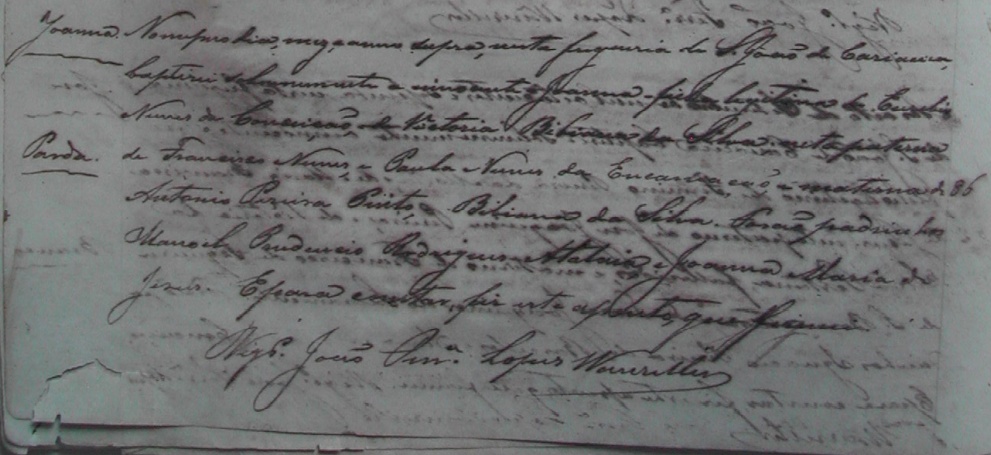 Joanna. No mesmo dia, mez, e anno supra, nesta freguesia de S. João de Cariacica,
baptizei solemnemente a innocente Joanna filha legitima de
Nunes da Conceição, e de Victoria Bibiana da Silva. neta paterna
Parda. de Francisco Nunes, e Paula Nunes da Encarnação e materna de 86
Antonio Pereira Pinto, e Bibiana da Silva. Forão padrinhos
Manoel Prudencio Rodrigues Atalaia, e Joanna Maria de
Jesus. E para constar, fiz este assento, que firmei.
Vigº. João Lopes